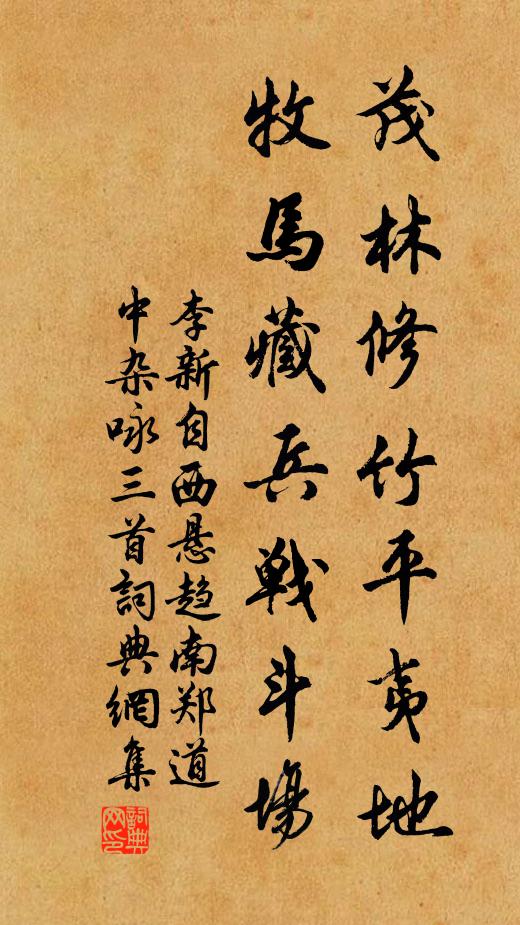 茂林修竹平夷地
牧馬藏兵戦斗場
李新自西悬趋南郑道
中杂咏三首詞典網集
詞典网印